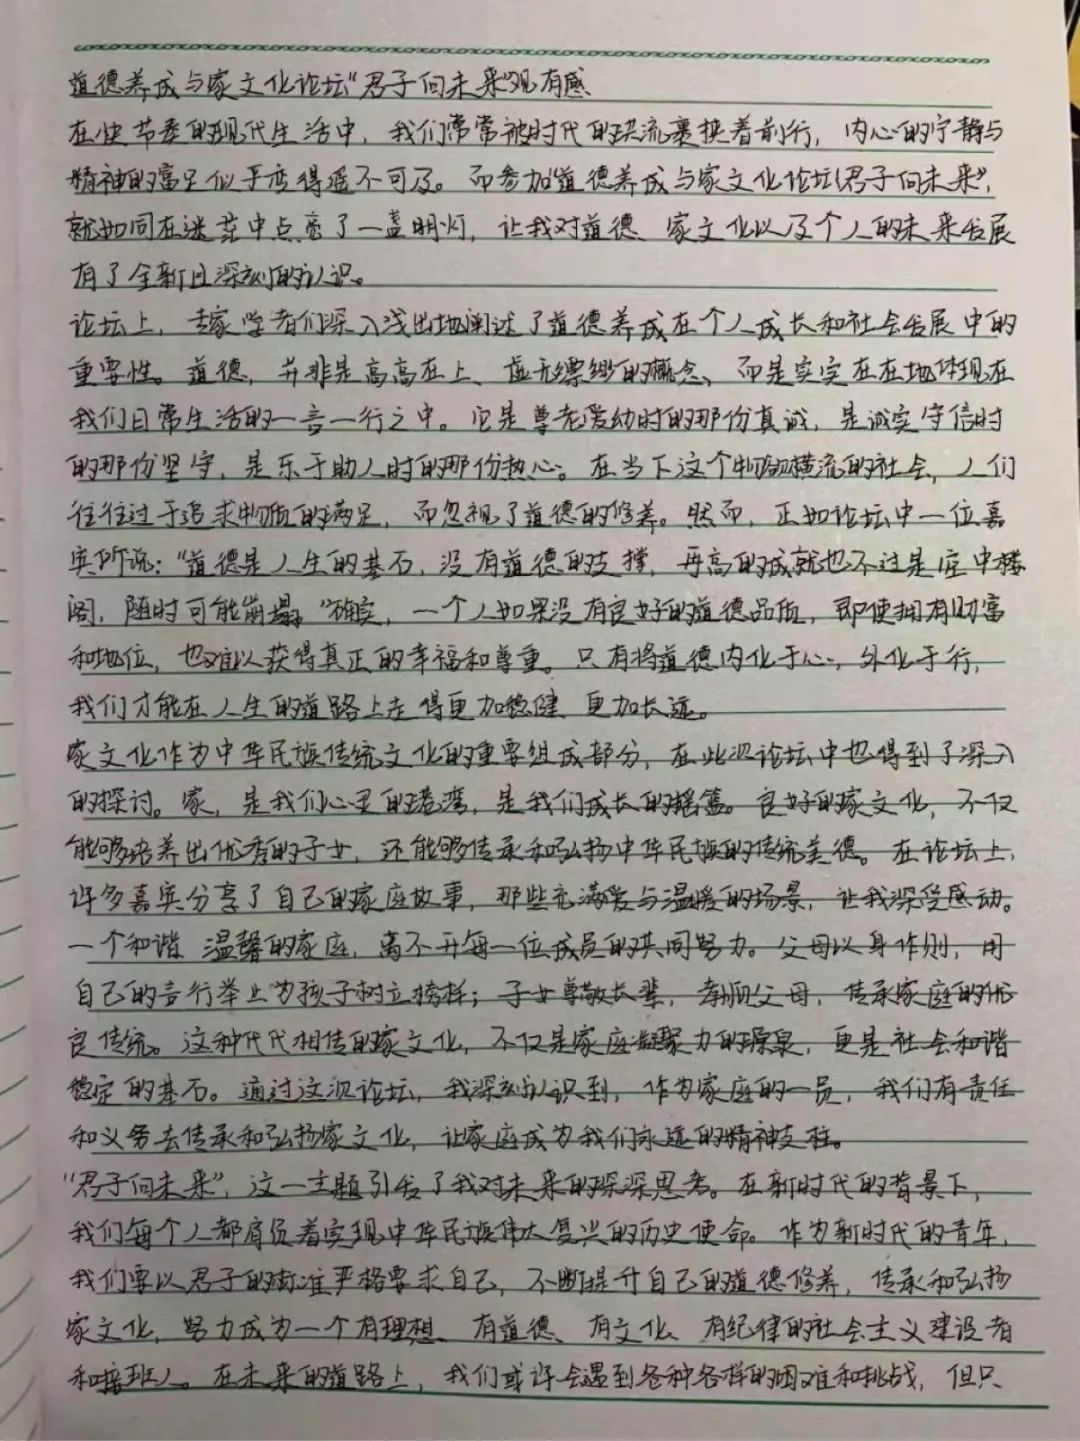 道德养成与家文化论坛“君子向未来”观有感
在快节奏的现代生活中，我们常常被时代的洪流裹挟着前行，内心的宁静与
精神的富足似乎变得遥不可及。而参加道德养成与家文化论坛“君子向未来”，
就如同在迷茫中点亮了一盏明灯，让我对道德、家文化以及个人的未来发展
有了全新且深刻的认识。
论坛上，专家学者们深入浅出地阐述了道德养成在个人成长和社会发展中的
重要性。道德，并非是高高在上、虚无缥缈的概念、而是实实在在地体现在
我们日常生活的一言一行之中。它是尊老爱幼时的那份真诚，是诚实守信时
的那份坚守，是乐于助人时的那份热心。在当下这个物欲横流的社会，人们
往往过于追求物质的满足，而忽视了道德的修养。然而，正如论坛中一位嘉
宾所说：“道德是人生的基石，没有道德的支撑，再高的成就也不过是空中楼
阁，随时可能崩塌。”确实，一个人如果没有良好的道德品质，即使拥有财富
和地位，也难以获得真正的幸福和尊重。只有将道德内化于心，外化于行，
我们才能在人生的道路上走得更加稳健、更加长远。
家文化作为中华民族传统文化的重要组成部分，在此次论坛中也得到了深入
的探讨。家，是我们心灵的港湾，是我们成长的摇篮。良好的家文化，不仅
能够培养出优秀的子女，还能够传承和弘扬中华民族的传统美德。在论坛上，
许多嘉宾分享了自己的家庭故事，那些充满爱与温暖的场景，让我深受感动。
一个和谐 温馨的家庭，离不开每一位成员的共同努力。父母以身作则，用
自己的言行举止为孩子树立榜样；子女尊敬长辈，孝顺父母，传承家庭的优
良传统。这种代代相传的家文化，不仅是家庭凝聚力的源泉，更是社会和谐
稳定的基石。通过这次论坛，我深刻认识到，作为家庭的一员，我们有责任
和义务去传承和弘扬家文化，让家庭成为我们永远的精神支柱。
“君子向未来”，这一主题引发了我对未来的深深思考。在新时代的背景下，
我们每个人都肩负着实现中华民族伟大复兴的历史使命。作为新时代的青年，
我们要以君子的标准严格要求自己，不断提升自己的道德修养，传承和弘扬
家文化，努力成为一个有理想、有道德、有文化、有纪律的社会主义建设者
和接班人。在未来的道路上，我们或许会遇到各种各样的困难和挑战，但只